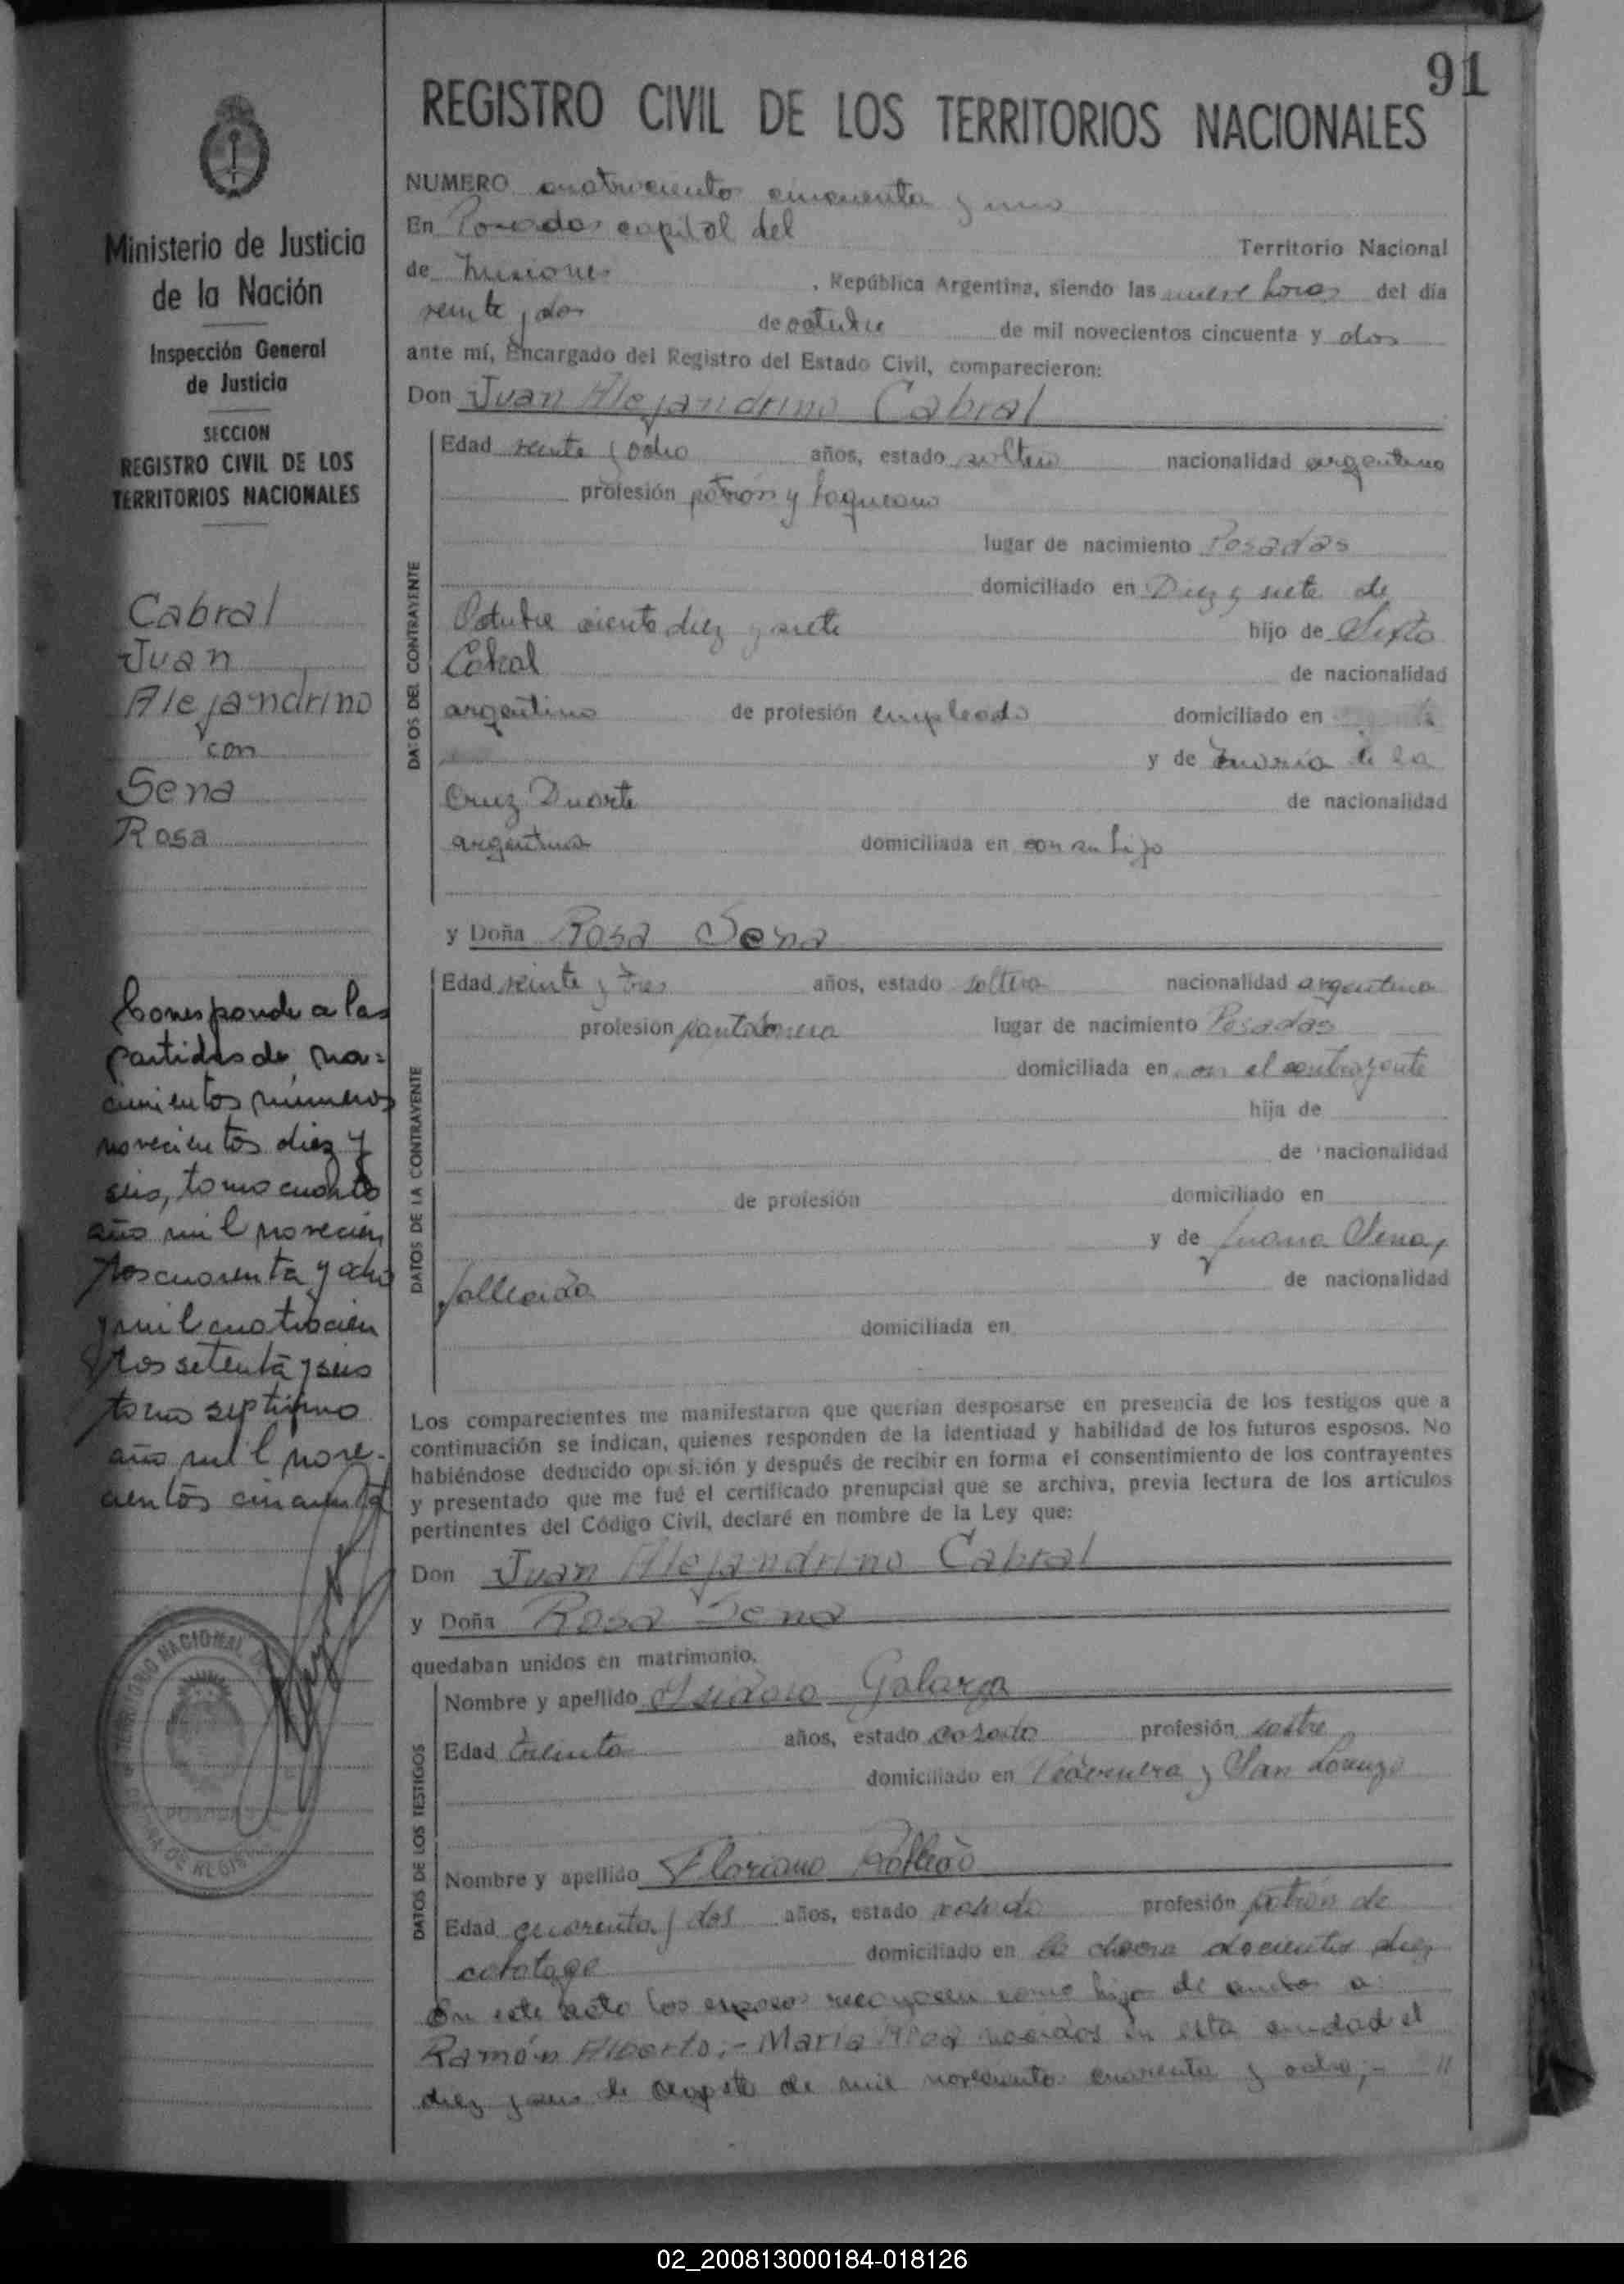 91
REGISTRO CIVIL DE LOS TERRITORIOS NACIONALES
Ministerio de Justicia
de la Nación
Inspección General
de Justicia
SECCION
REGISTRO CIVIL DE LOS
TERRITORIOS NACIONALES
Cabral
Juan
Alejandrino
con
Sena
Rosa
Corresponde a las
partidas de na=
cimientos números
novecientos diez y
seis, tomo cuarto
año mil novecien
tos cuarenta y ocho
y mil cuatrocien
tos setenta y seis
tomo septimo
año mil nove-
cientos cincuenta
TERRITORIO NACIONAL DE
POSADAS
NUMERO cuatrocientos cincuenta y uno
En Posadas capital del
Territorio Nacional
de Misiones , República Argentina, siendo las nueve horas del día
veinte y dos de octubre de mil novecientos cincuenta y dos
ante mí, Encargado del Registro del Estado Civil, comparecieron:
Don Juan Alejandrino Cabral
DATOS DEL CONTRAYENTE
Edad veinte y ocho años, estado soltero nacionalidad argentino
profesión patrón y baqueano
lugar de nacimiento Posadas
domiciliado en Diez y siete de
Octubre ciento diez y siete hijo de Sixto
Cabral de nacionalidad
argentino de profesión empleado domiciliado en
y de María de la
Cruz Duarte de nacionalidad
argentina domiciliada en con su hijo
y Doña Rosa Sena
DATOS DE LA CONTRAYENTE
Edad veinte y tres años, estado soltera nacionalidad argentina
profesión pantalonera lugar de nacimiento Posadas
domiciliada en con el contrayente
hija de
de nacionalidad
de profesión domiciliado en
y de Juana Sena,
fallecida de nacionalidad
domiciliada en
Los comparecientes me manifestaron que querían desposarse en presencia de los testigos que a
continuación se indican, quienes responden de la identidad y habilidad de los futuros esposos. No
habiéndose deducido oposición y después de recibir en forma el consentimiento de los contrayentes
y presentado que me fué el certificado prenupcial que se archiva, previa lectura de los artículos
pertinentes del Código Civil, declaré en nombre de la Ley que:
Don Juan Alejandrino Cabral
y Doña Rosa Sena
quedaban unidos en matrimonio.
DATOS DE LOS TESTIGOS
Nombre y apellido Isidoro Galarza
Edad treinta años, estado casado profesión sastre
domiciliado en y San Lorenzo
Nombre y apellido Floriano
Edad cuarenta y dos años, estado casado profesión patrón de
cabotage domiciliado en la chacra docientos diez
En este acto los esposos reconocen como hijo de ambos a:
Ramón Alberto;- María nacidos en esta ciudad el
diez y seis de agosto de mil novecientos cuarenta y ocho;- "
02_200813000184-018126